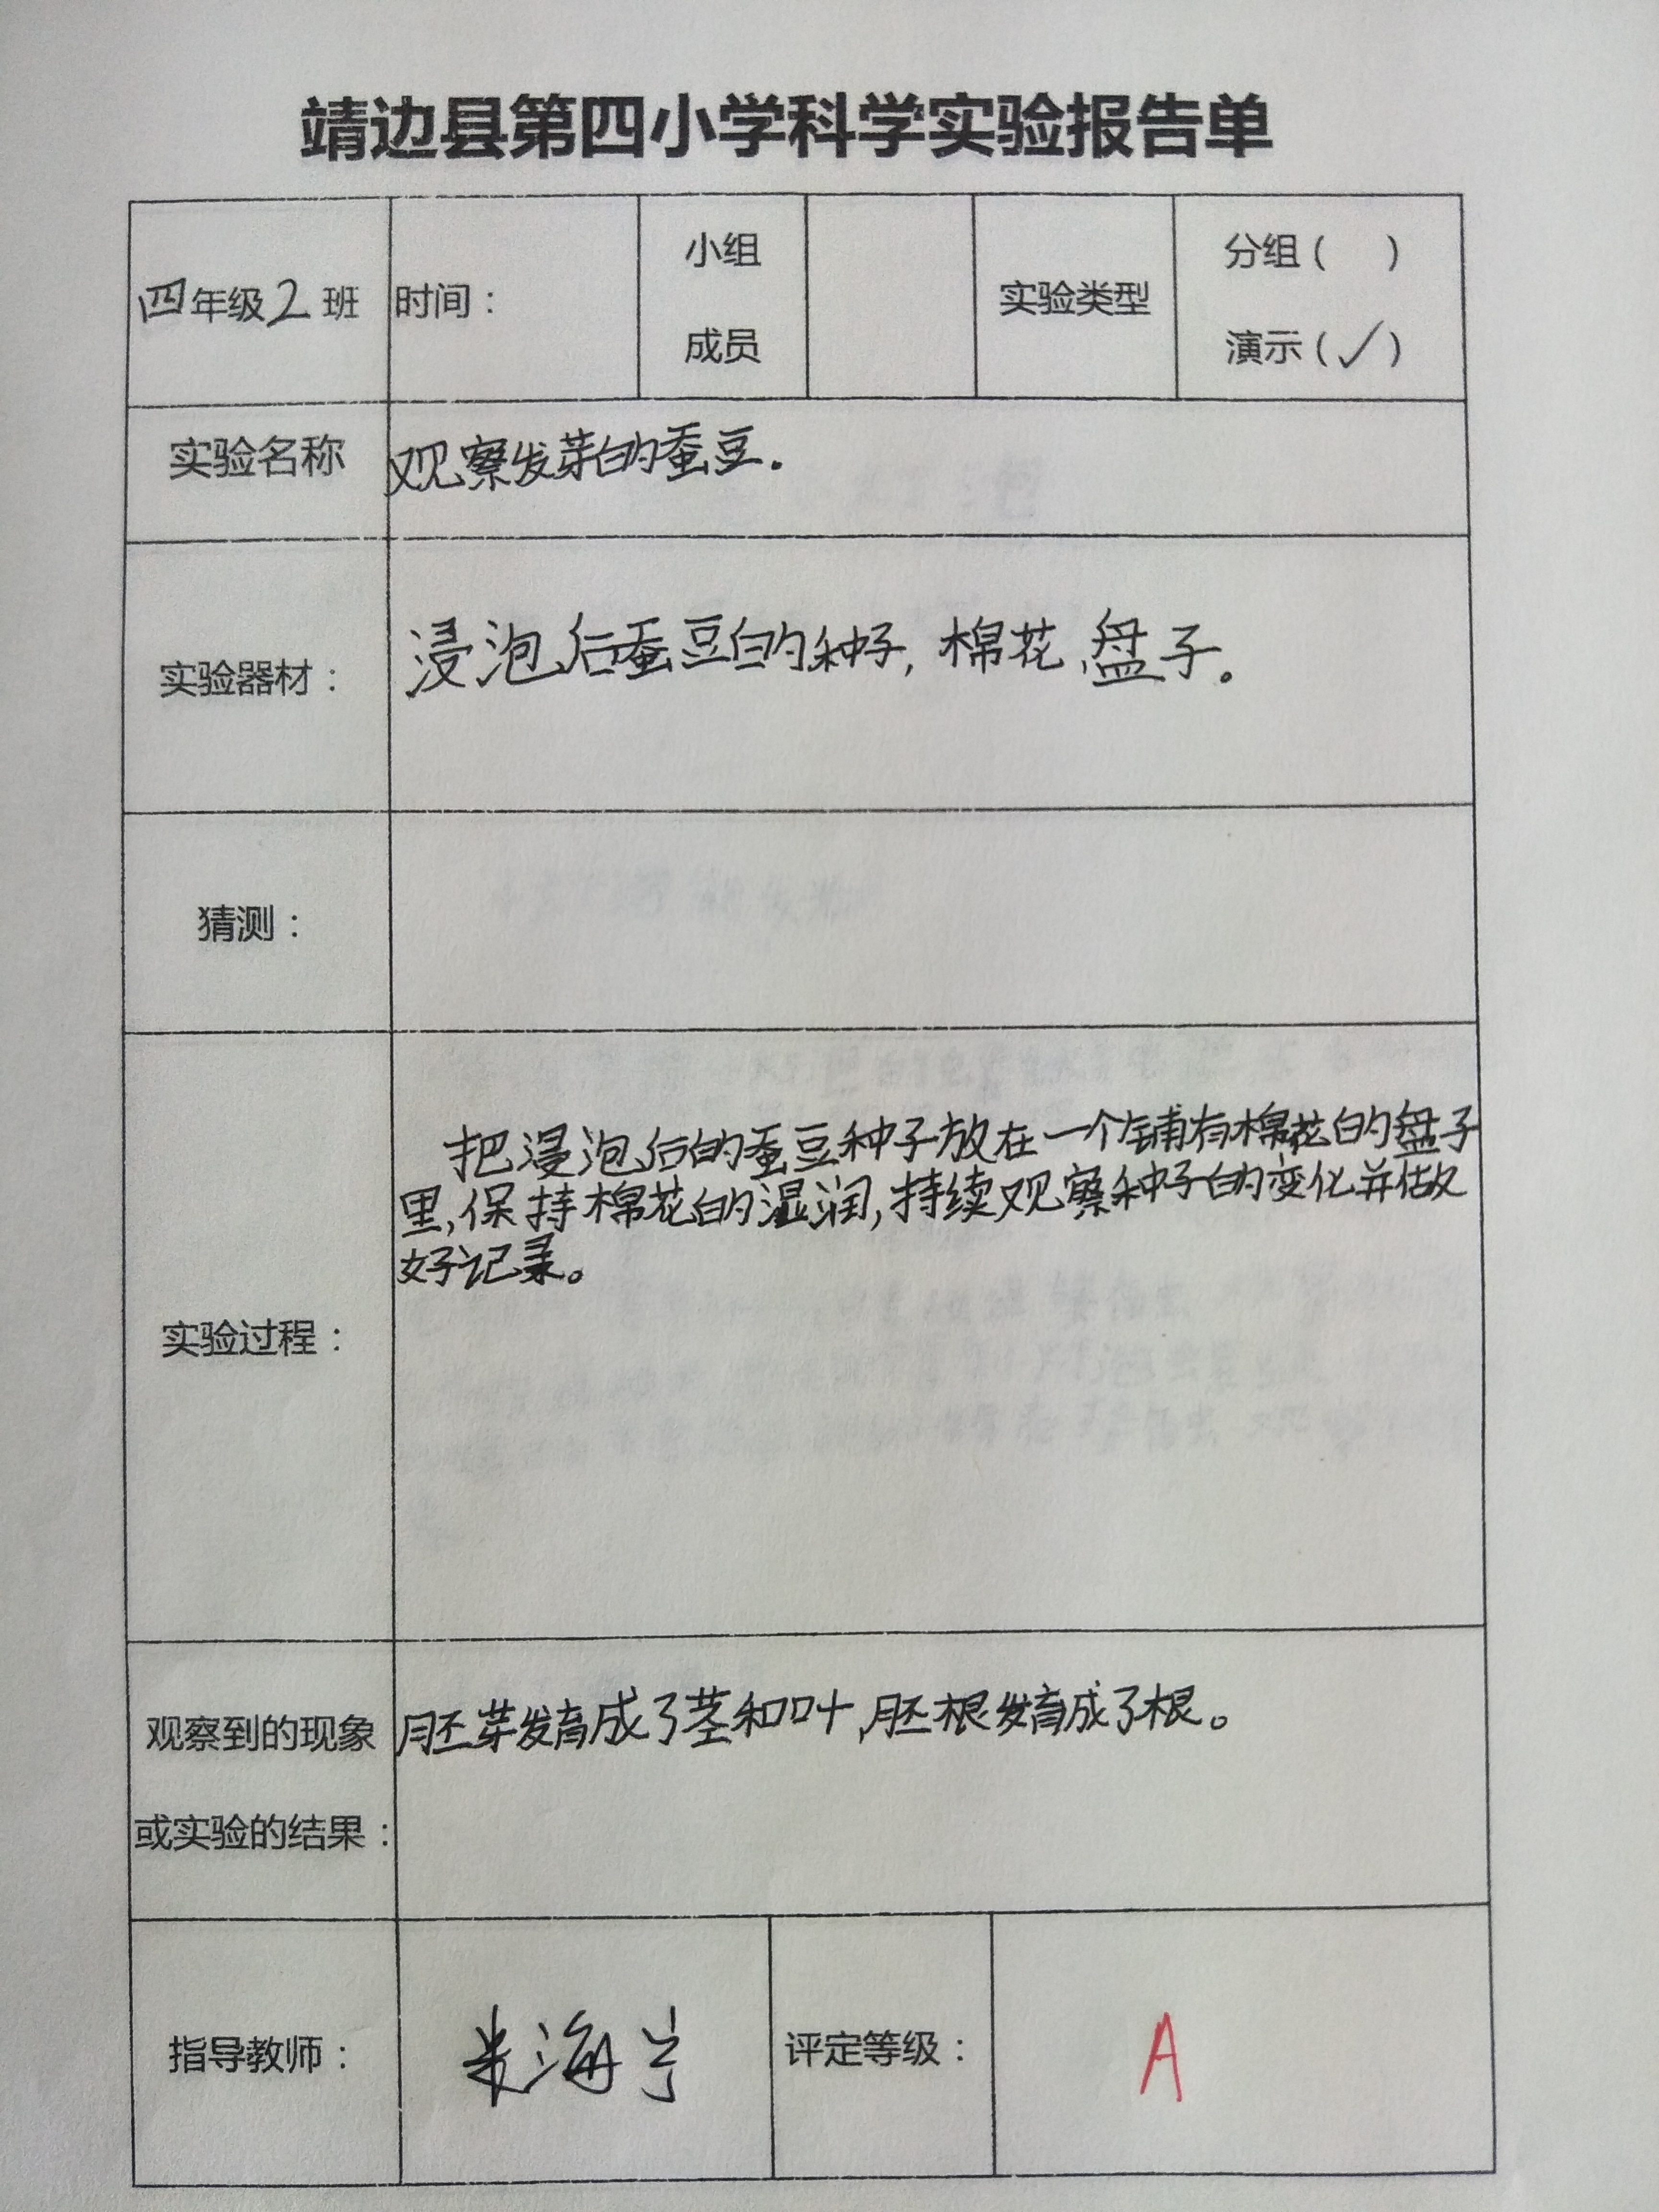 靖边县第四小学科学实验报告单
四年级2班
时间：
小组
成员
实验类型
分组（ ）
演示（✓）
实验名称
观察发芽的蚕豆.
实验器材：
浸泡后蚕豆的种子,棉花、盘子。
猜测：
实验过程：
把浸泡后的蚕豆种子放在一个铺有棉花的盘子
里,保持棉花的湿润,持续观察种子的变化并做
好记录。
观察到的现象
或实验的结果：
胚芽发育成了茎和叶,胚根发育成了根。
指导教师：
评定等级：
A